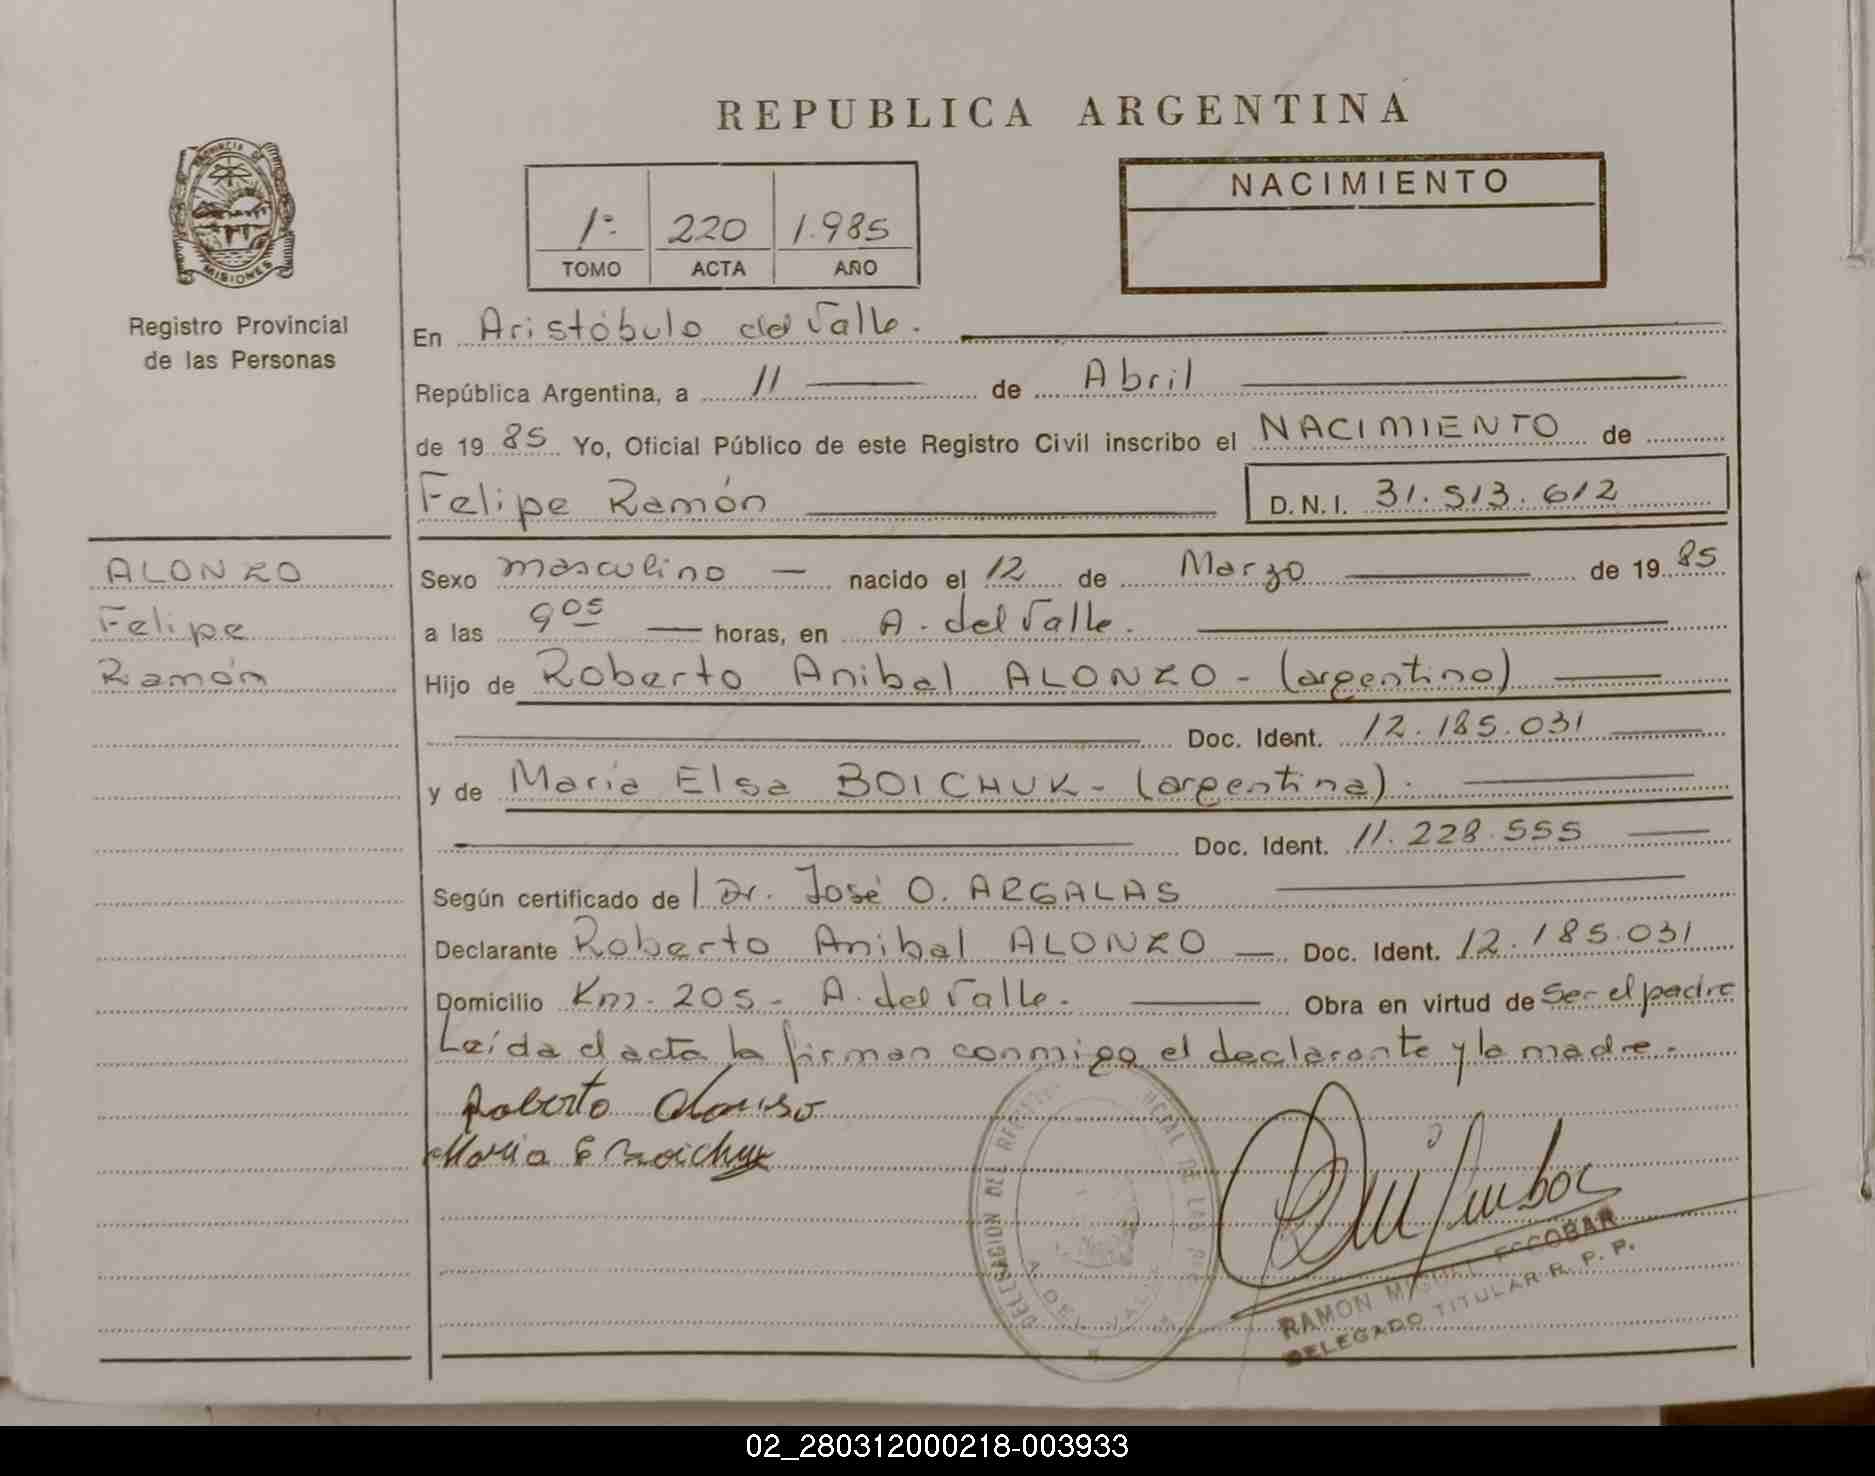 REPUBLICA ARGENTINA
PROVINCIA DE
MISIONES
Registro Provincial
de las Personas
1º 220 1.985
TOMO ACTA AÑO
NACIMIENTO
En Aristóbulo del Valle.
República Argentina, a 11 de Abril
de 1985 Yo, Oficial Público de este Registro Civil inscribo el NACIMIENTO de
Felipe Ramón D.N.I. 31.513.612
ALONZO
Felipe
Ramón
Sexo masculino — nacido el 12 de Marzo de 1985
a las 9 05 — horas, en A. del Valle.
Hijo de Roberto Anibal ALONZO - (argentino)
Doc. Ident. 12.185.031
y de María Elsa BOICHUK - (argentina).
Doc. Ident. 11.228.555
Según certificado de Dr. José O. ARGALAS
Declarante Roberto Anibal ALONZO — Doc. Ident. 12.185.031
Domicilio Km. 205 - A. del Valle. Obra en virtud de ser el padre
Leída el acta la firman conmigo el declarante y la madre.-
Roberto Alonso
Maria E Boichuk
DELEGACION DEL DE LAS
A. DEL VALLE
RAMON MIGUEL ESCOBAR
DELEGADO TITULAR R. P. P.
02_280312000218-003933